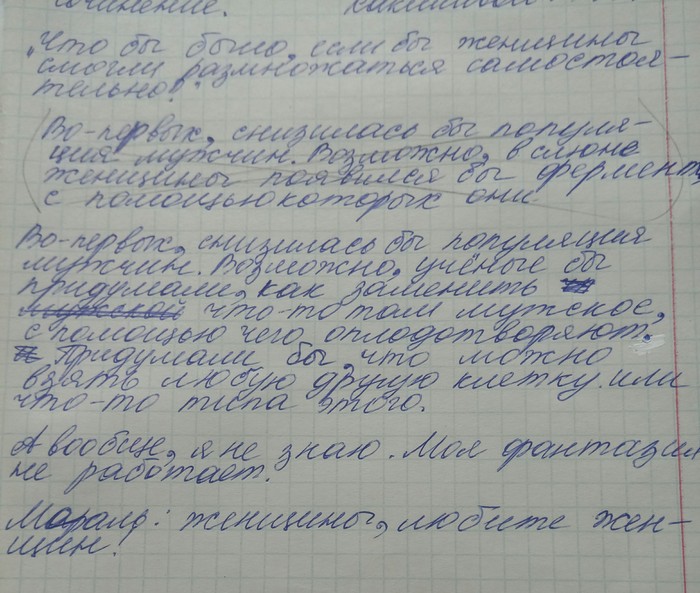 сочинение.
„Что бы было, если бы женщины
смогли размножаться самостоя-
тельно?"
Во-первых, снизилась бы популя-
ция мужчин. Возможно, в слюне
женщины появился бы фермент,
с помощью которых они
Во-первых, снизилась бы популяция
мужчин. Возможно, учёные бы
придумали, как заменить
мужской что-то там мужское,
с помощью чего оплодотворяют.
Придумали бы, что можно
взять любую другую клетку или
что-то типа этого.
А вообще, я не знаю. Моя фантазия
не работает.
Мораль: женщины, любите жен-
щин!